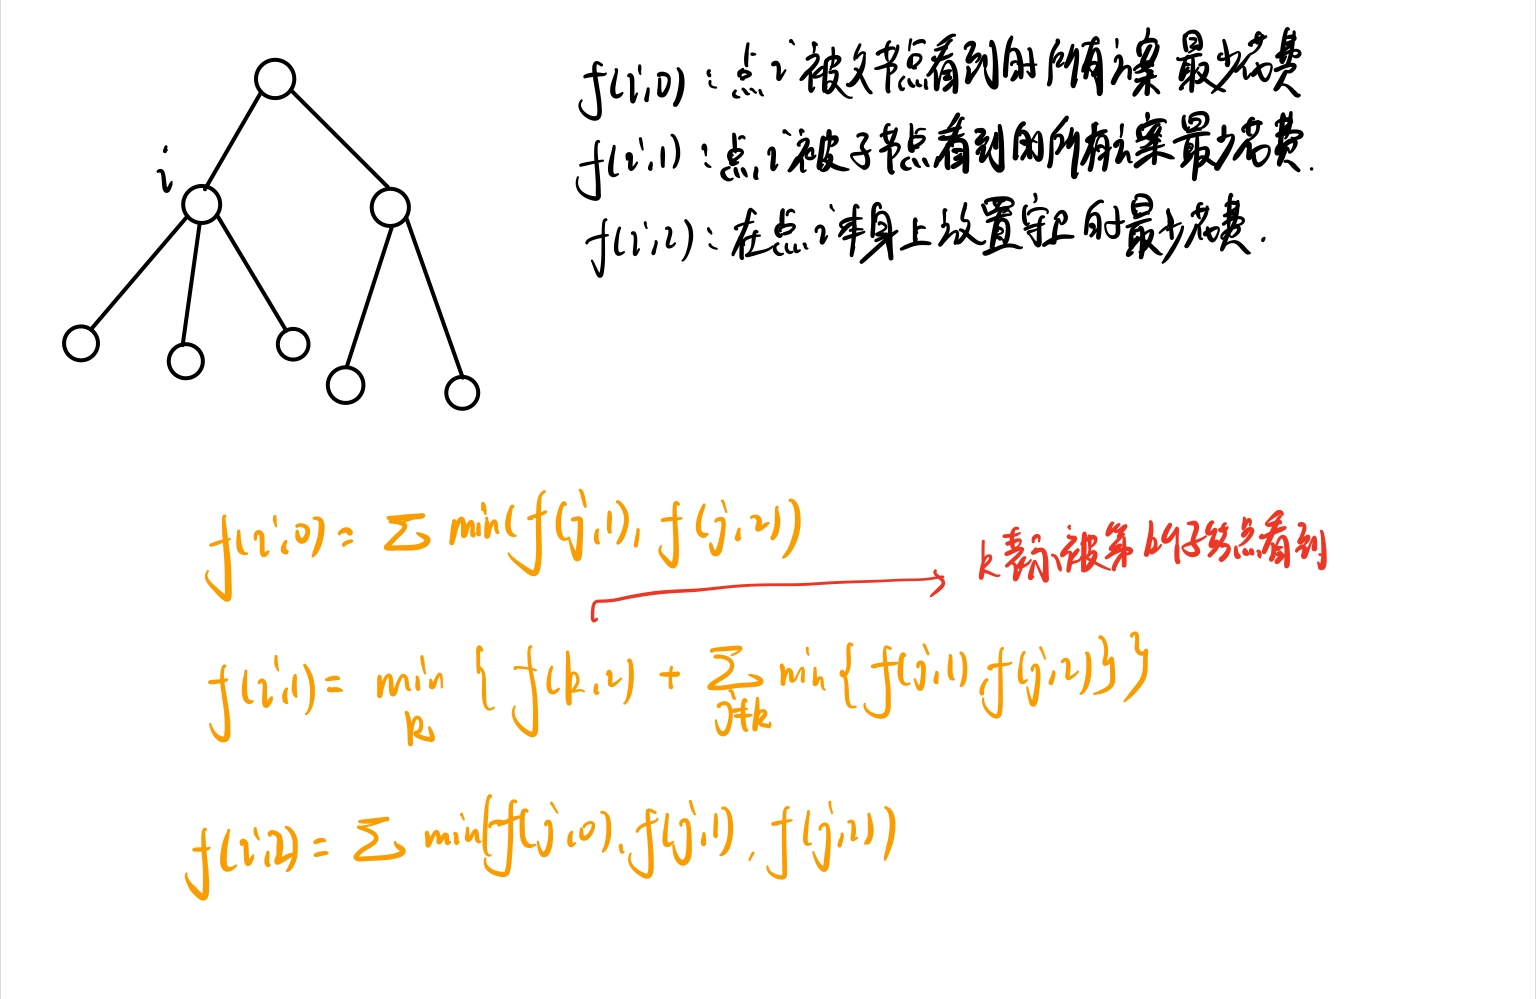 f(i,0)：点i被父节点看到的所有方案最少花费
i
f(i,1)：点i被子节点看到的所有方案最少花费.
f(i,2)：在点i本身上放置守卫的最少花费.
f(i,0) = Σ min(f(j,1), f(j,2))
k表示被第k个子结点看到
f(i,1) = min_k { f(k,2) + Σ_{j≠k} min{f(j,1), f(j,2)}}
f(i,2) = Σ min(f(j,0), f(j,1), f(j,2))